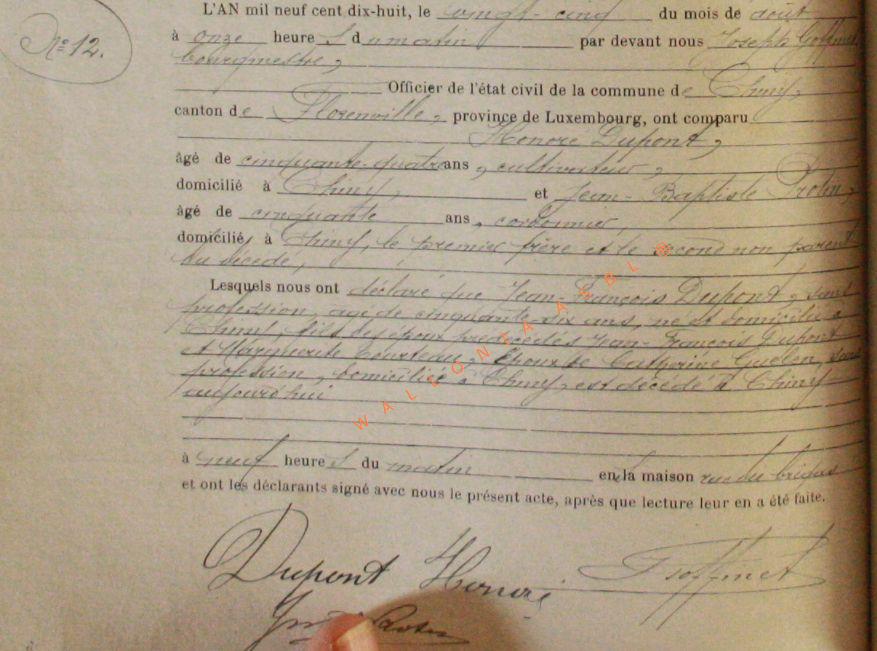 N° 12.
L'AN mil neuf cent dix-huit, le vingt-cinq du mois de août
à onze heure s du matin par devant nous Joseph Goffinet,
bourgmestre,
Officier de l'état civil de la commune de Chiny,
canton de Florenville, province de Luxembourg, ont comparu
Honoré Dupont,
âgé de cinquante-quatre ans, cultivateur,
domicilié à Chiny, et Jean-Baptiste
âgé de cinquante ans, cordonnier,
domicilié, à Chiny, le premier frère et le second non parent
du décédé,
Lesquels nous ont déclaré que Jean-François Dupont, sans
profession, âgé de cinquante-dix ans, né et domicilié à
Chiny, fils des époux Jean-François Dupont
et Marguerite époux de Catherine sans
profession, domiciliée à Chiny, est décédé à Chiny
aujourd'hui
à neuf heure s du matin en la maison rue du
et ont les déclarants signé avec nous le présent acte, après que lecture leur en a été faite.
Dupont Honoré Goffinet
WALFONTANABLE